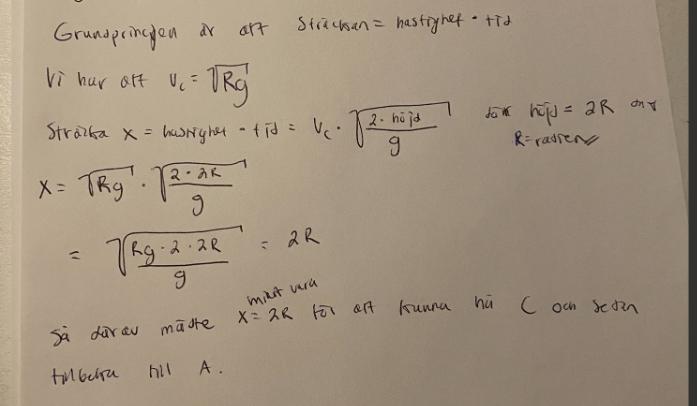 Grundprincipen är att Sträckan = hastighet · tid
Vi har att v_c = √(Rg)
Sträcka x = hastighet · tid = v_c · √(2 · höjd / g) där höjd = 2R och R = radien
x = √(Rg) · √(2 · 2R / g)
= √(Rg · 2 · 2R / g) = 2R
Så därav måste minst vara x = 2R för att kunna nå C och sedan
tillbaka till A.